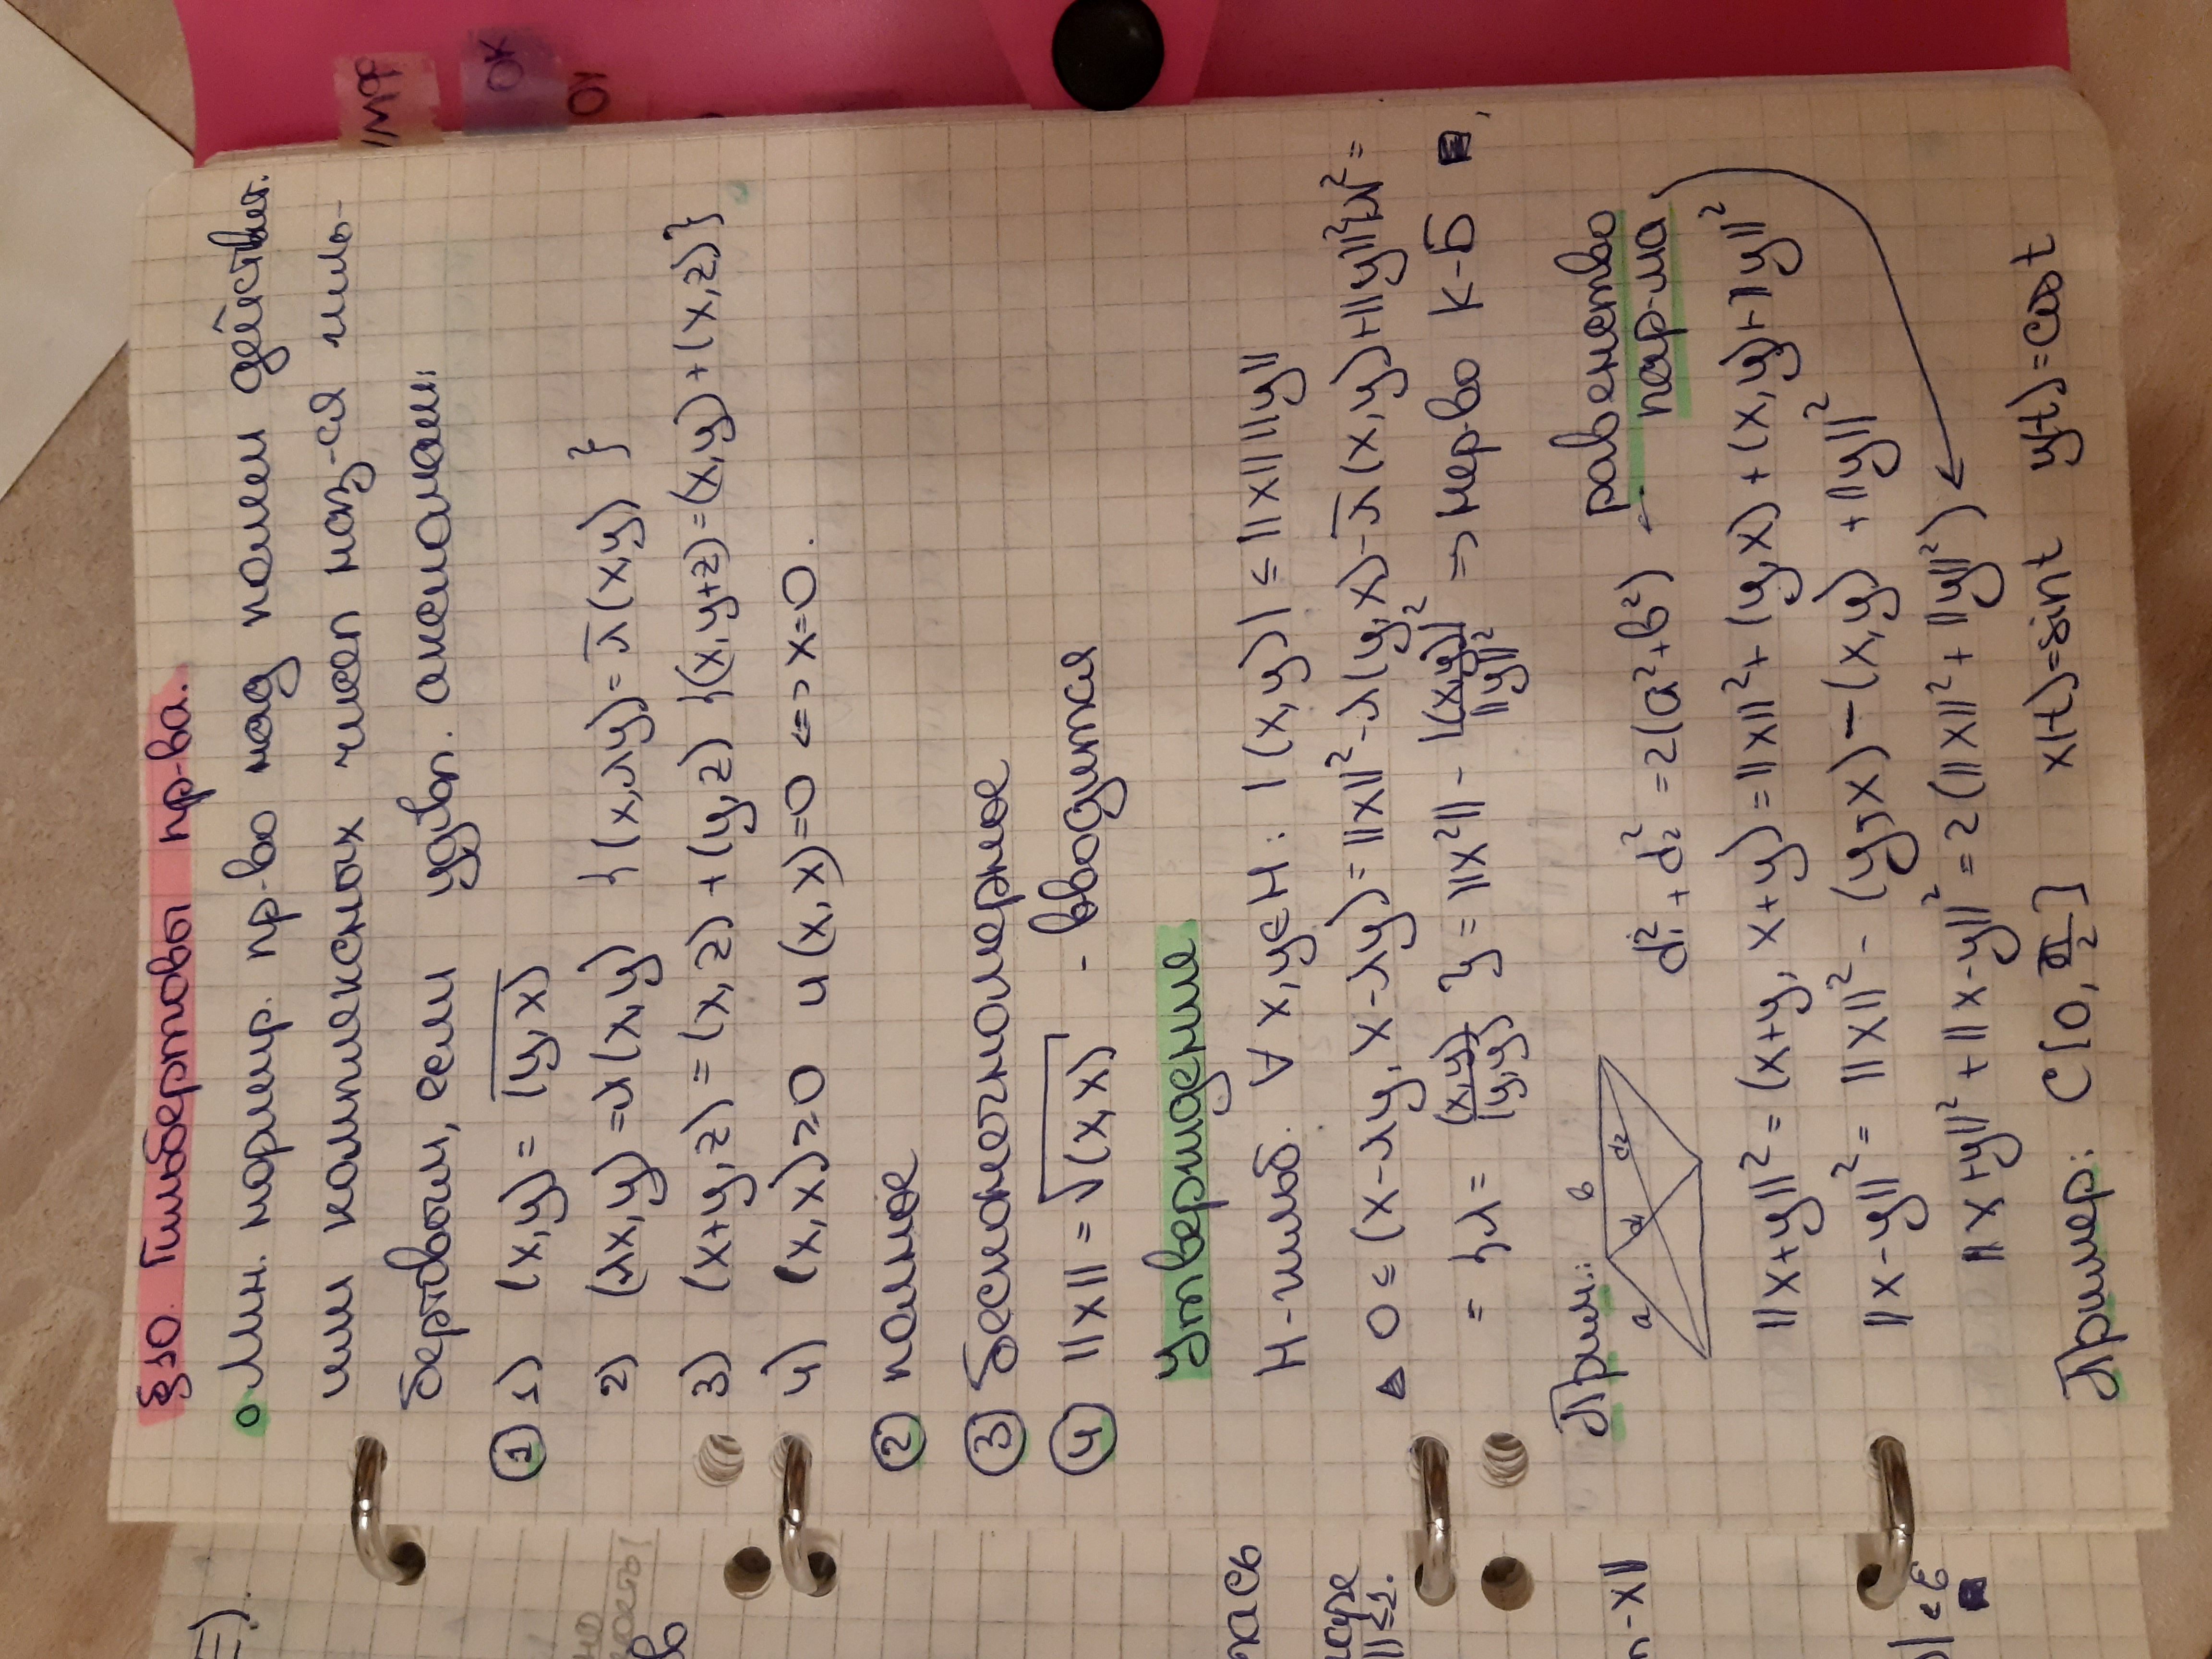 §10. Гильбертовы пр-ва.
о Лин. нормир. пр-во над полем действит.
или комплексных чисел наз-ся гиль-
бертовым, если удовл. аксиомам:
① 1) (x,y) = \overline{(y,x)}
2) (λx,y) = λ(x,y) {(x,λy) = \overline{λ}(x,y)}
3) (x+y,z) = (x,z) + (y,z) {(x,y+z) = (x,y) + (x,z)}
4) (x,x) ≥ 0 и (x,x) = 0 <=> x=0.
② полное
③ бесконечномерное
④ ||x|| = √(x,x) - вводится
Утверждение
H-гильб. ∀ x,y∈H : |(x,y)| ≤ ||x|| ||y||
▲ 0 ≤ (x-λy, x-λy) = ||x||² - λ(y,x) - \overline{λ}(x,y) + ||y||²|λ|² =
= {λ = (x,y)/(y,y)} = ||x²|| - |(x,y)|²/||y||² => нер-во К-Б ■
Прим.: a b d₁ d₂ d₁² + d₂² = 2(a²+b²) ← равенство
пар-ма
||x+y||² = (x+y, x+y) = ||x||² + (y,x) + (x,y) + ||y||²
||x-y||² = ||x||² - (y,x) - (x,y) + ||y||²
||x+y||² + ||x-y||² = 2(||x||² + ||y||²) ←
Пример: C[0, π/2] x(t)=sint y(t)=cost
ОК
n-x||